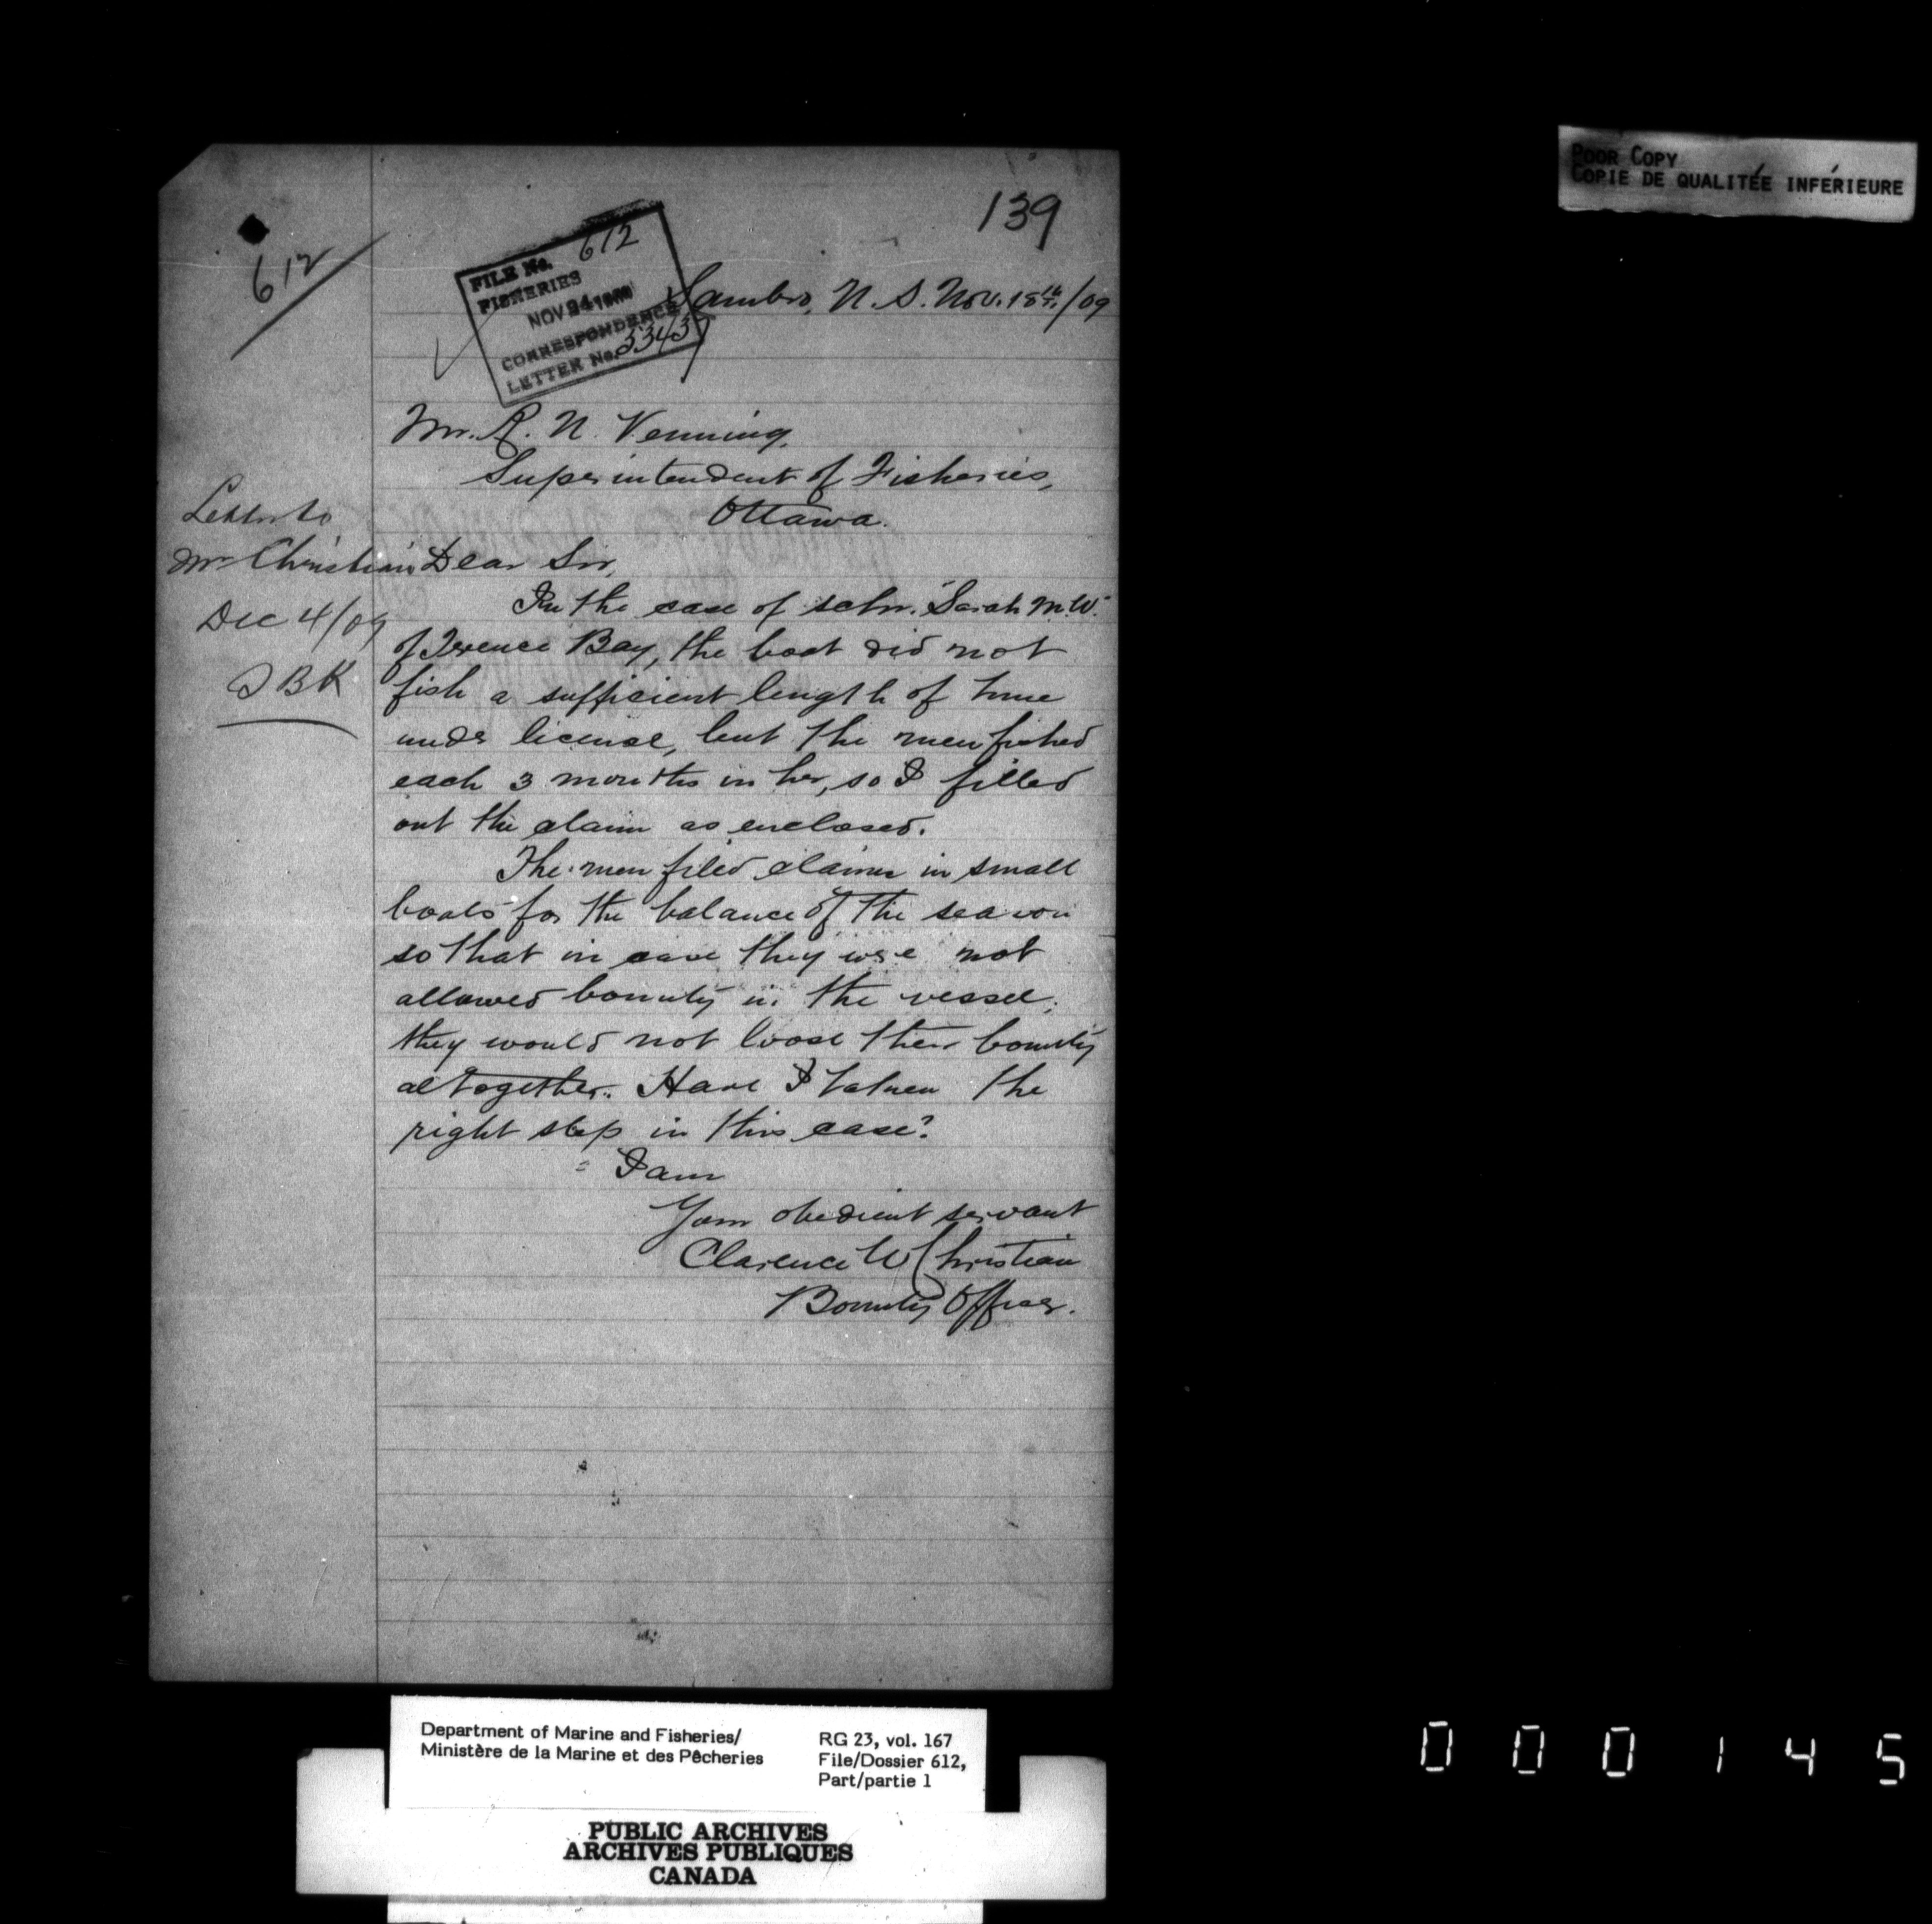 POOR COPY
COPIE DE QUALITÉE INFÉRIEURE
139
612
FILE No. 612
FISHERIES
NOV 24 1909
CORRESPONDENCE
LETTER No. 3343
Sambro, N. S. Nov. 18th/09
Mr. R. N. Venning,
Superintendent of Fisheries,
Ottawa.
Letter to
Mr Christian
Dec 4/09
Dear Sir,
In the case of schr. "Sarah M.W."
of Terence Bay, the boat did not
fish a sufficient length of time
under license, but the men fished
each 3 months in her, so I filled
out the claim as enclosed.
The men filed claims in small
boats for the balance of the season
so that in case they were not
allowed bounty in the vessel,
they would not loose their bounty
altogether. Have I taken the
right step in this case?
I am
Your obedient servant
Clarence W Christian
Bounty Officer.
Department of Marine and Fisheries/
Ministère de la Marine et des Pêcheries
RG 23, vol. 167
File/Dossier 612,
Part/partie 1
PUBLIC ARCHIVES
ARCHIVES PUBLIQUES
CANADA
000145